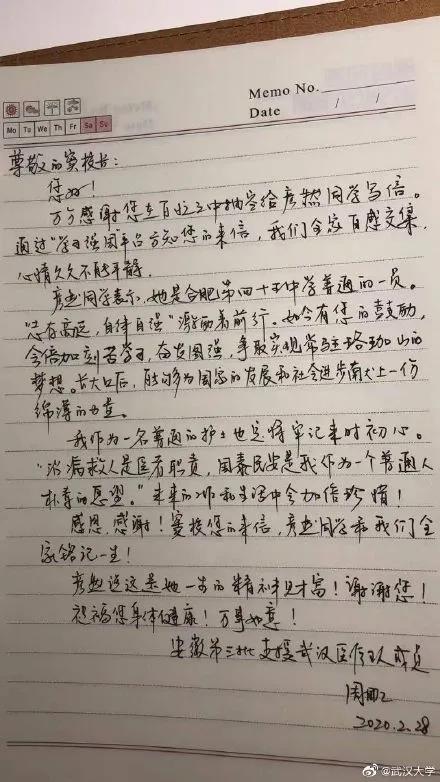 Memo No.
Date / /
Mo Tu We Th Fr Sa Su
尊敬的窦校长:
您好!
万分感谢您在百忙之中抽空给彦然同学写信。
通过“学习强国平台方知您的来信,我们全家百感交集,
心情久久不能平静。
彦然同学表示,她是合肥第四十五中学普通的一员。
“志存高远,自律自强”激励着前行。如今有您的鼓励,
会倍加刻苦学习,奋发图强,争取实现常驻珞珈山的
梦想。长大后,能够为国家的发展和社会进步献上一份
绵薄的力量。
我作为一名普通的护士也定将牢记来时初心。
“治病救人是医者职责,国泰民安是我作为一个普通人
朴素的愿望。”未来的工作和生活中会加倍珍惜!
感恩,感谢!窦校您的来信,彦然同学和我们全
家铭记一生!
彦然说这是她一生的精神财富!谢谢您!
祝福您身体健康!万事如意!
安徽第三批支援武汉医疗队成员
周
2020.2.28
@武汉大学